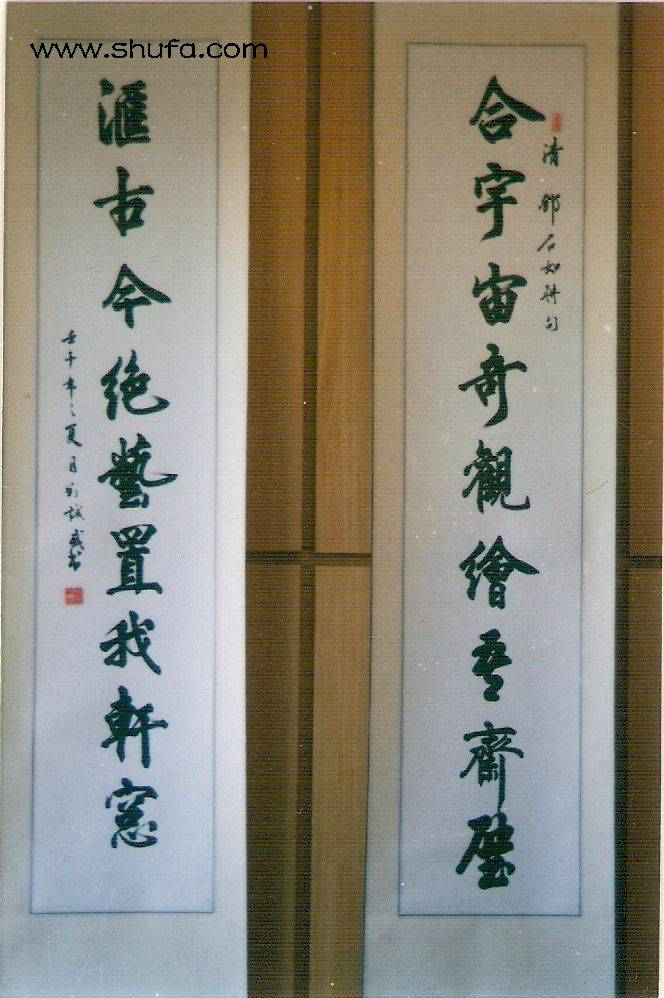 www.shufa.com
合宇宙奇觀繪吾齋壁
清 鄧石如聯句
滙古今絶藝置我軒窓
壬午年之夏月